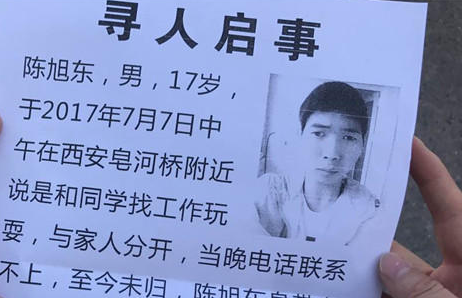 寻人启事
陈旭东，男，17岁，
于2017年7月7日中
午在西安皂河桥附近
说是和同学找工作玩
耍，与家人分开，当晚电话联系
不上，至今未归，陈旭东身